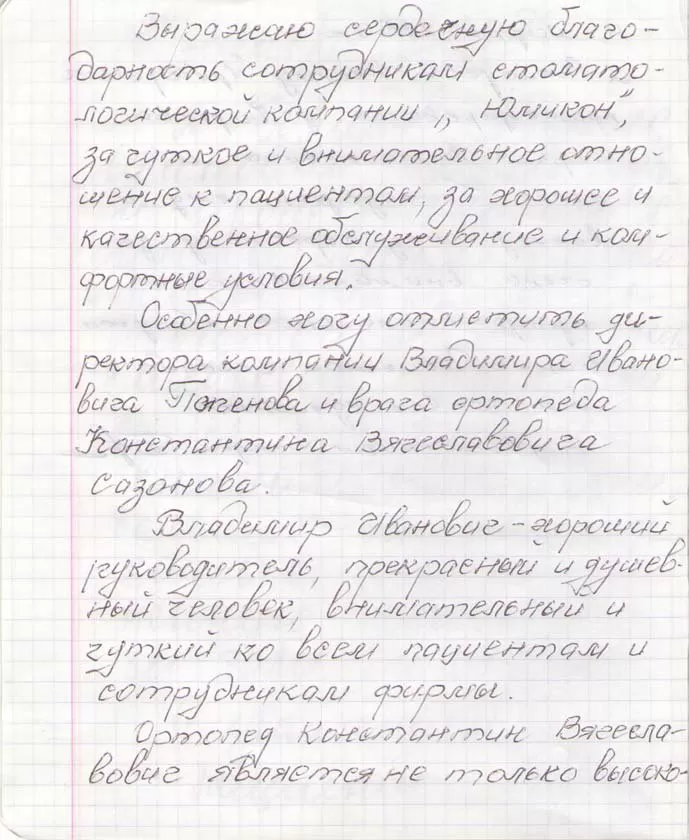 Выражаю сердечную благо-
дарность сотрудникам стомато-
логической компании „Юмикон",
за чуткое и внимательное отно-
шение к пациентам, за хорошее и
качественное обслуживание и ком-
фортные условия.
Особенно хочу отметить ди-
ректора компании Владимира Ивано-
вича и врача ортопеда
Константина Вячеславовича
Сазонова.
Владимир Иванович - хороший
руководитель, прекрасный и душев-
ный человек, внимательный и
чуткий ко всем пациентам и
сотрудникам фирмы.
Ортопед Константин Вячесла-
вович является не только высоко-